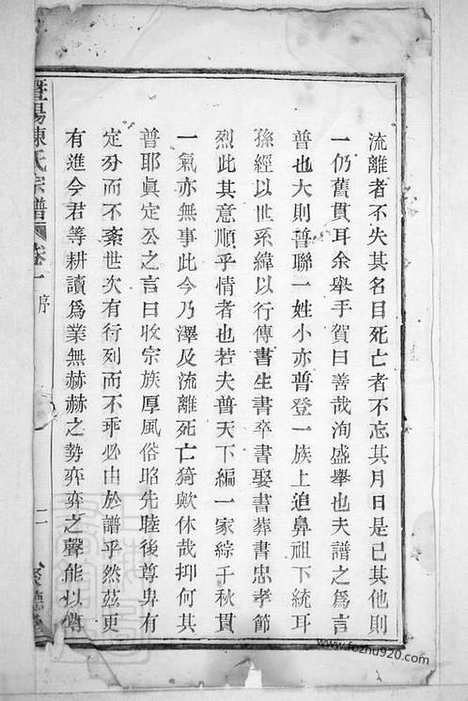 流離者不失其名目死亡者不忘其月日是已其他則
一仍舊貫耳余舉手賀曰善哉洵盛舉也夫譜之為言
普也大則普聯一姓小亦普登一族上追鼻祖下統耳
孫經以世系緯以行傳書生書卒書娶書葬書忠孝節
烈此其意順乎情者也若夫普天下編一家綜千秋貫
一氣亦無事此今乃澤及流離死亡猗歟休哉抑何其
普耶眞定公之言曰收宗族厚風俗昭先睦後尊卑有
定分而不紊世次有行列而不乖必由於譜乎然茲更
有進今君等耕讀爲業無赫赫之勢弈弈之聲能以
暨陽陳氏宗譜 卷一 序 二
www.fozhu920.com